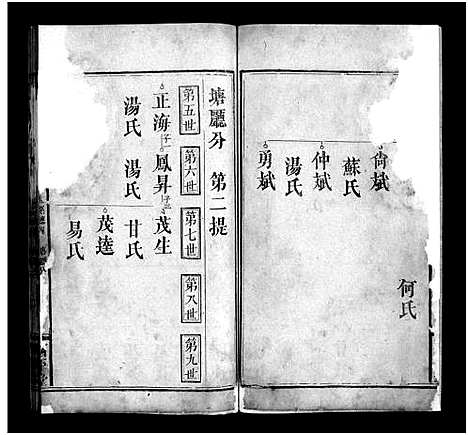 尚斌
蘇氏
仲斌
湯氏
勇斌
何氏
塘廳分 第二提
第五世 第六世 第七世 第八世 第九世
正海 鳳昇 茂生
湯氏 湯氏 甘氏
茂逵
易氏